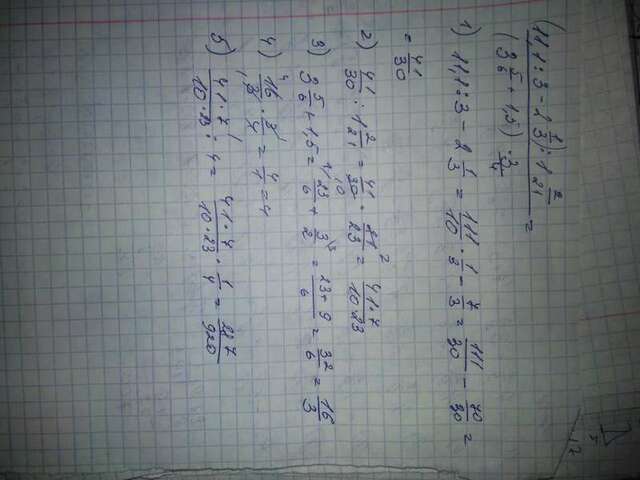 (11,1 : 3 - 2 1/3) : 1 2/21
(3 5/6 + 1,5) · 3/4 =
1) 11,1 : 3 - 2 1/3 = 111/10 · 1/3 - 7/3 = 111/30 - 70/30 =
= 41/30
2) 41/30 : 1 2/21 = 41/30 · 21/23 = 41·7/10·23
3) 3 5/6 + 1,5 = 23/6 + 3/2 = 23+9/6 = 32/6 = 16/3
4) 16/3 · 3/4 = 4/1 = 4
5) 41·7/10·23 : 4 = 41·7/10·23 · 1/4 = 287/920